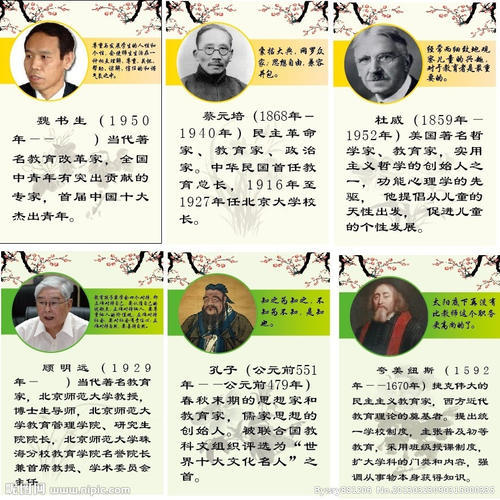 尊重与发展学生的人性和
个性,会使师生生活在一
种相互理解、尊重、关怀、
帮助、谅解、信任的和谐
气氛之中。
魏书生(1950
年——  )当代著
名教育改革家,全国
中青年有突出贡献的
专家,首届中国十大
杰出青年。
囊括大典,网罗众
家;思想自由,兼容
并包。
蔡元培(1868年-
1940年)民主革命
家、教育家、政治
家。中华民国首任教
育总长,1916年至
1927年任北京大学校
长。
经常而细致地观
察儿童的兴趣,
对于教育者是最重
要的。
杜威(1859年—
1952年)美国著名哲
学家、教育家,实用
主义哲学的创始人之
一,功能心理学的先
驱, 他提倡从儿童的
天性出发, 促进儿童
的个性发展。
顾明远(1929
年-  )当代著名教育
家,北京师范大学教授,
博士生导师,北京师范大
学教育管理学院、研究生
院院长,北京师范大学珠
海分校教育学院名誉院长
兼首席教授、学术委员会
主任
知之为知之,不
知为不知,是知
也。
孔子(公元前551
年——公元前479年)
春秋末期的思想家和
教育家,儒家思想的
创始人。被联合国教
科文组织评选为“世
界十大文化名人”之
首。
太阳底下再没有
比教师这个职务
更高尚的了。
夸美纽斯(1592
年——1670年)捷克伟大的
民主主义教育家,西方近代
教育理论的奠基者。提出统
一学校制度,主张普及初等
教育,采用班级授课制度,
扩大学科的门类和内容,强
调从事物本身获得知识。
昵图网 www.nipic.com